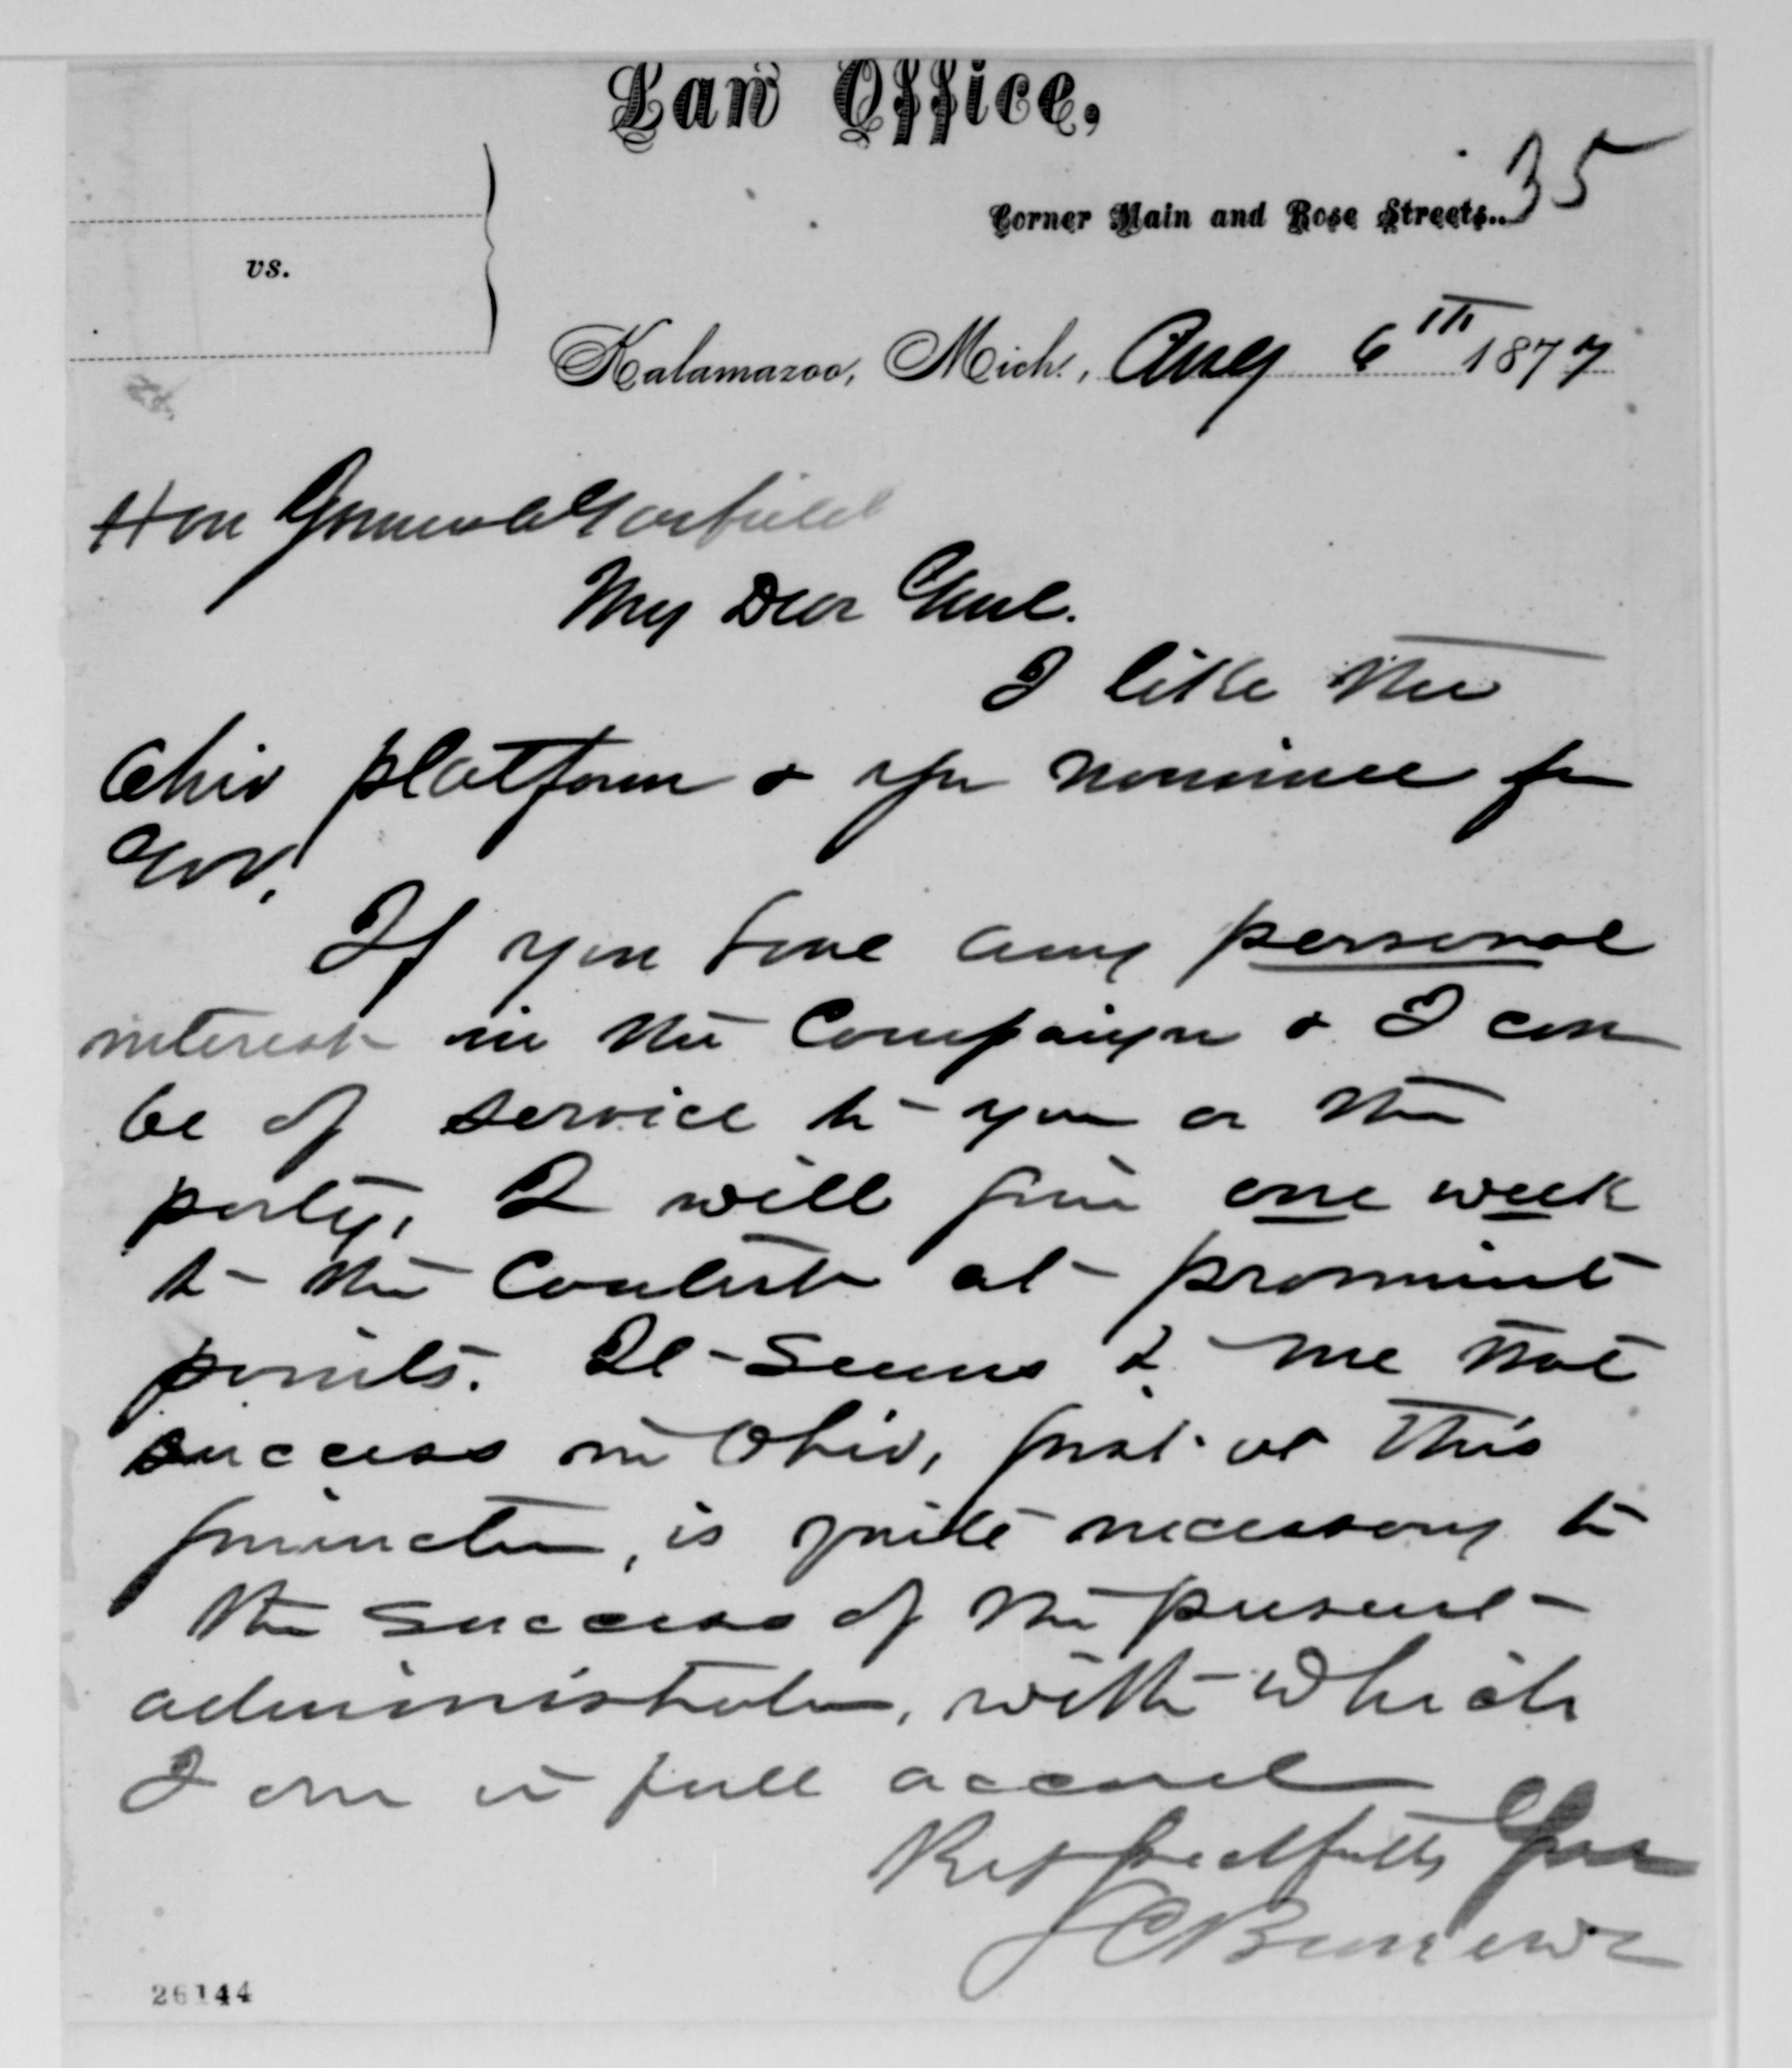 Law Office,
35
Corner Main and Rose Streets.
vs.
Kalamazoo, Mich., Aug 6th 1877
Hon James A Garfield
My Dear Genl.
I like the
Ohio platform & yr nominee for
Gov.
If you have any personal
interest in the Campaign & I can
be of service to you or the
party, I will give one week
to the Contest at prominent
points. It seems to me that
success in Ohio, just at this
juncture, is quite necessary to
the success of the present
administration, with which
I am in full accord
Respectfully Yours
J C Burrows
26144